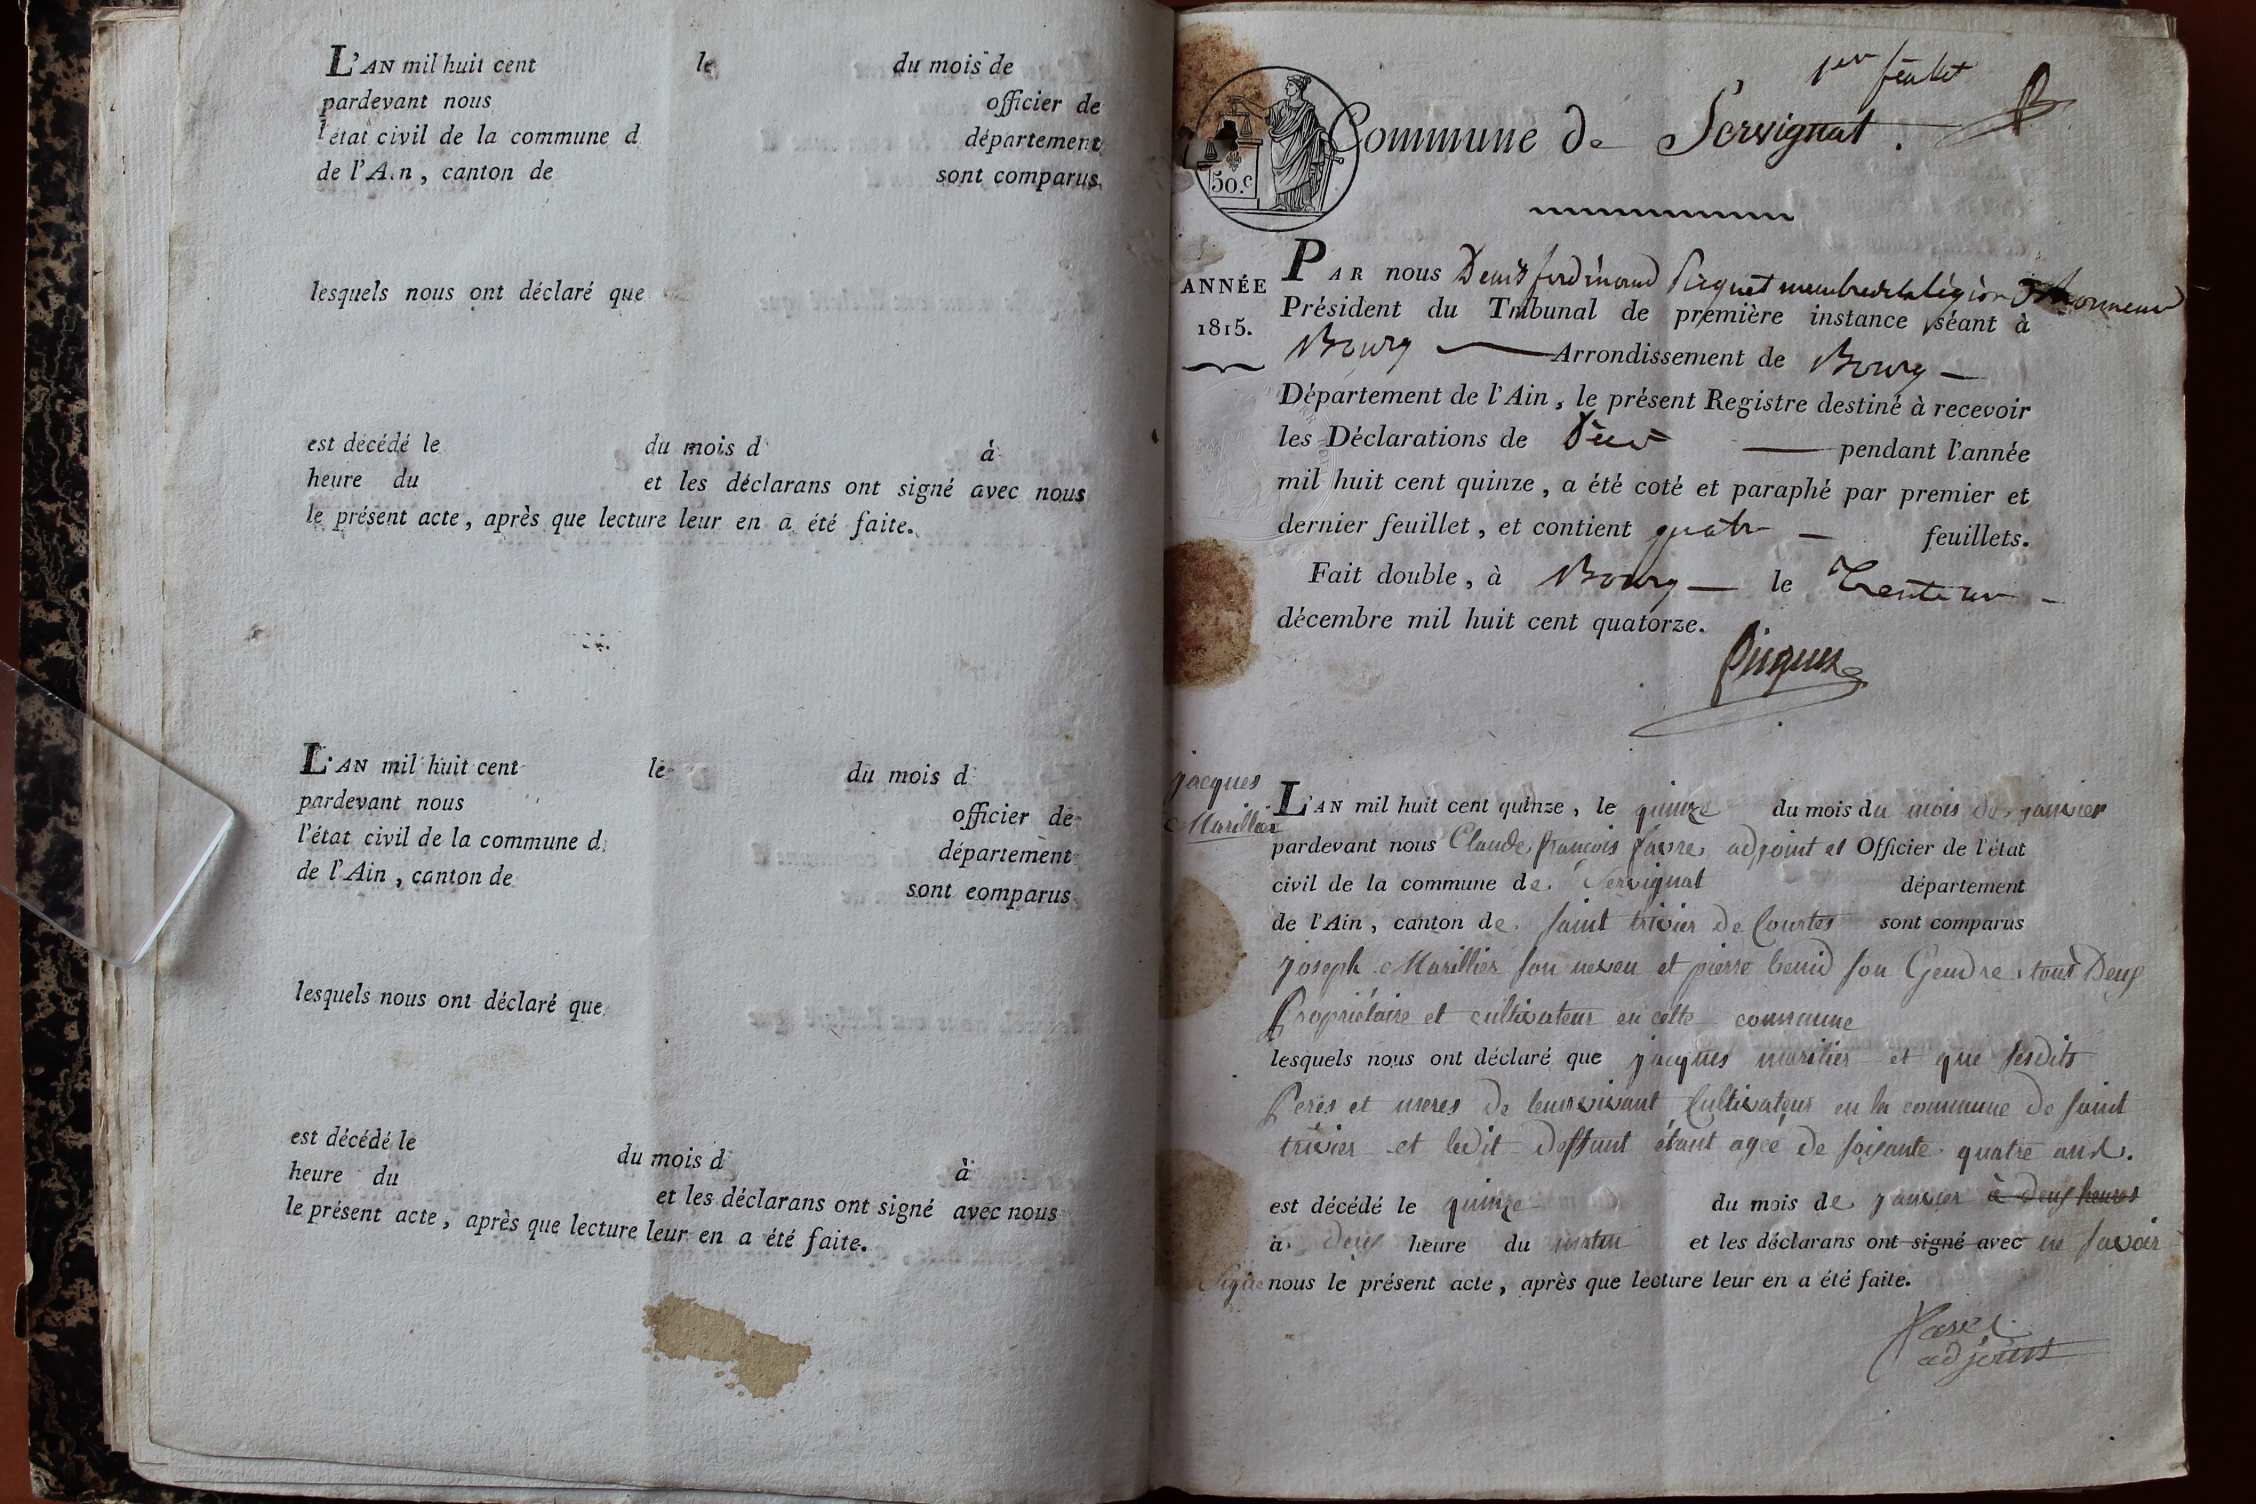 L'AN mil huit cent le du mois de
pardevant nous officier de
l'état civil de la commune d département
de l'Ain, canton de sont comparus
lesquels nous ont déclaré que
est décédé le du mois d à
heure du et les déclarans ont signé avec nous
le présent acte, après que lecture leur en a été faite.
L'AN mil huit cent le du mois d
pardevant nous officier de
l'état civil de la commune d département
de l'Ain, canton de sont comparus
lesquels nous ont déclaré que
est décédé le du mois d à
heure du et les déclarans ont signé avec nous
le présent acte, après que lecture leur en a été faite.
1er feulet
Commune de Servignat.
50.c
ANNÉE
1815.
PAR nous Denis ferdinand Picquet membre de la légion d'honneur
Président du Tribunal de première instance séant à
Bourg Arrondissement de Bourg
Département de l'Ain, le présent Registre destiné à recevoir
les Déclarations de Décès pendant l'année
mil huit cent quinze, a été coté et paraphé par premier et
dernier feuillet, et contient quatre feuillets.
Fait double, à Bourg le trente un
décembre mil huit cent quatorze.
Picquet
jacques
Marillier
L'AN mil huit cent quinze, le quinze du mois du mois de janvier
pardevant nous Claude françois favre adjoint et Officier de l'état
civil de la commune de Servignat département
de l'Ain, canton de Saint trivier de Courtes sont comparus
joseph Marillier son neveu et pierre benid son Gendre tous Deux
Propriétaire et cultivateur en cette commune
lesquels nous ont déclaré que jacques marilier et que sesdits
Peres et meres de leur vivant Cultivateur en la commune de saint
trivier et ledit deffunt étant agée de soixante quatre ans.
est décédé le quinze du mois de janvier à deux heures
à deux heure du matin et les déclarans ont signé avec ne savoir
Signe nous le présent acte, après que lecture leur en a été faite.
favre
adjoint